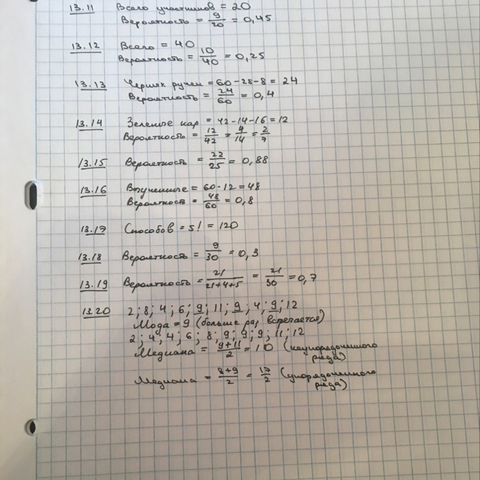 13.11 Всего участников = 20
Вероятность = 9/20 = 0,45
13.12 Всего = 40
Вероятность = 10/40 = 0,25
13.13 Черных ручек = 60-28-8 = 24
Вероятность = 24/60 = 0,4
13.14 Зеленые шар = 42-14-16 = 12
Вероятность = 12/42 = 4/14 = 2/7
13.15 Вероятность = 22/25 = 0,88
13.16 Выученные = 60-12 = 48
Вероятность = 48/60 = 0,8
13.17 Способов = 5! = 120
13.18 Вероятность = 9/30 = 0,3
13.19 Вероятность = 21/21+4+5 = 21/30 = 0,7
13.20 2; 8; 4; 6; 9; 11; 9; 4; 9; 12
Мода = 9 (больше раз встречается)
2; 4; 4; 6; 8; 9; 9; 9; 11; 12
Медиана = 9+11/2 = 10 (неупорядоченного ряда)
Медиана = 8+9/2 = 17/2 (упорядоченного ряда)